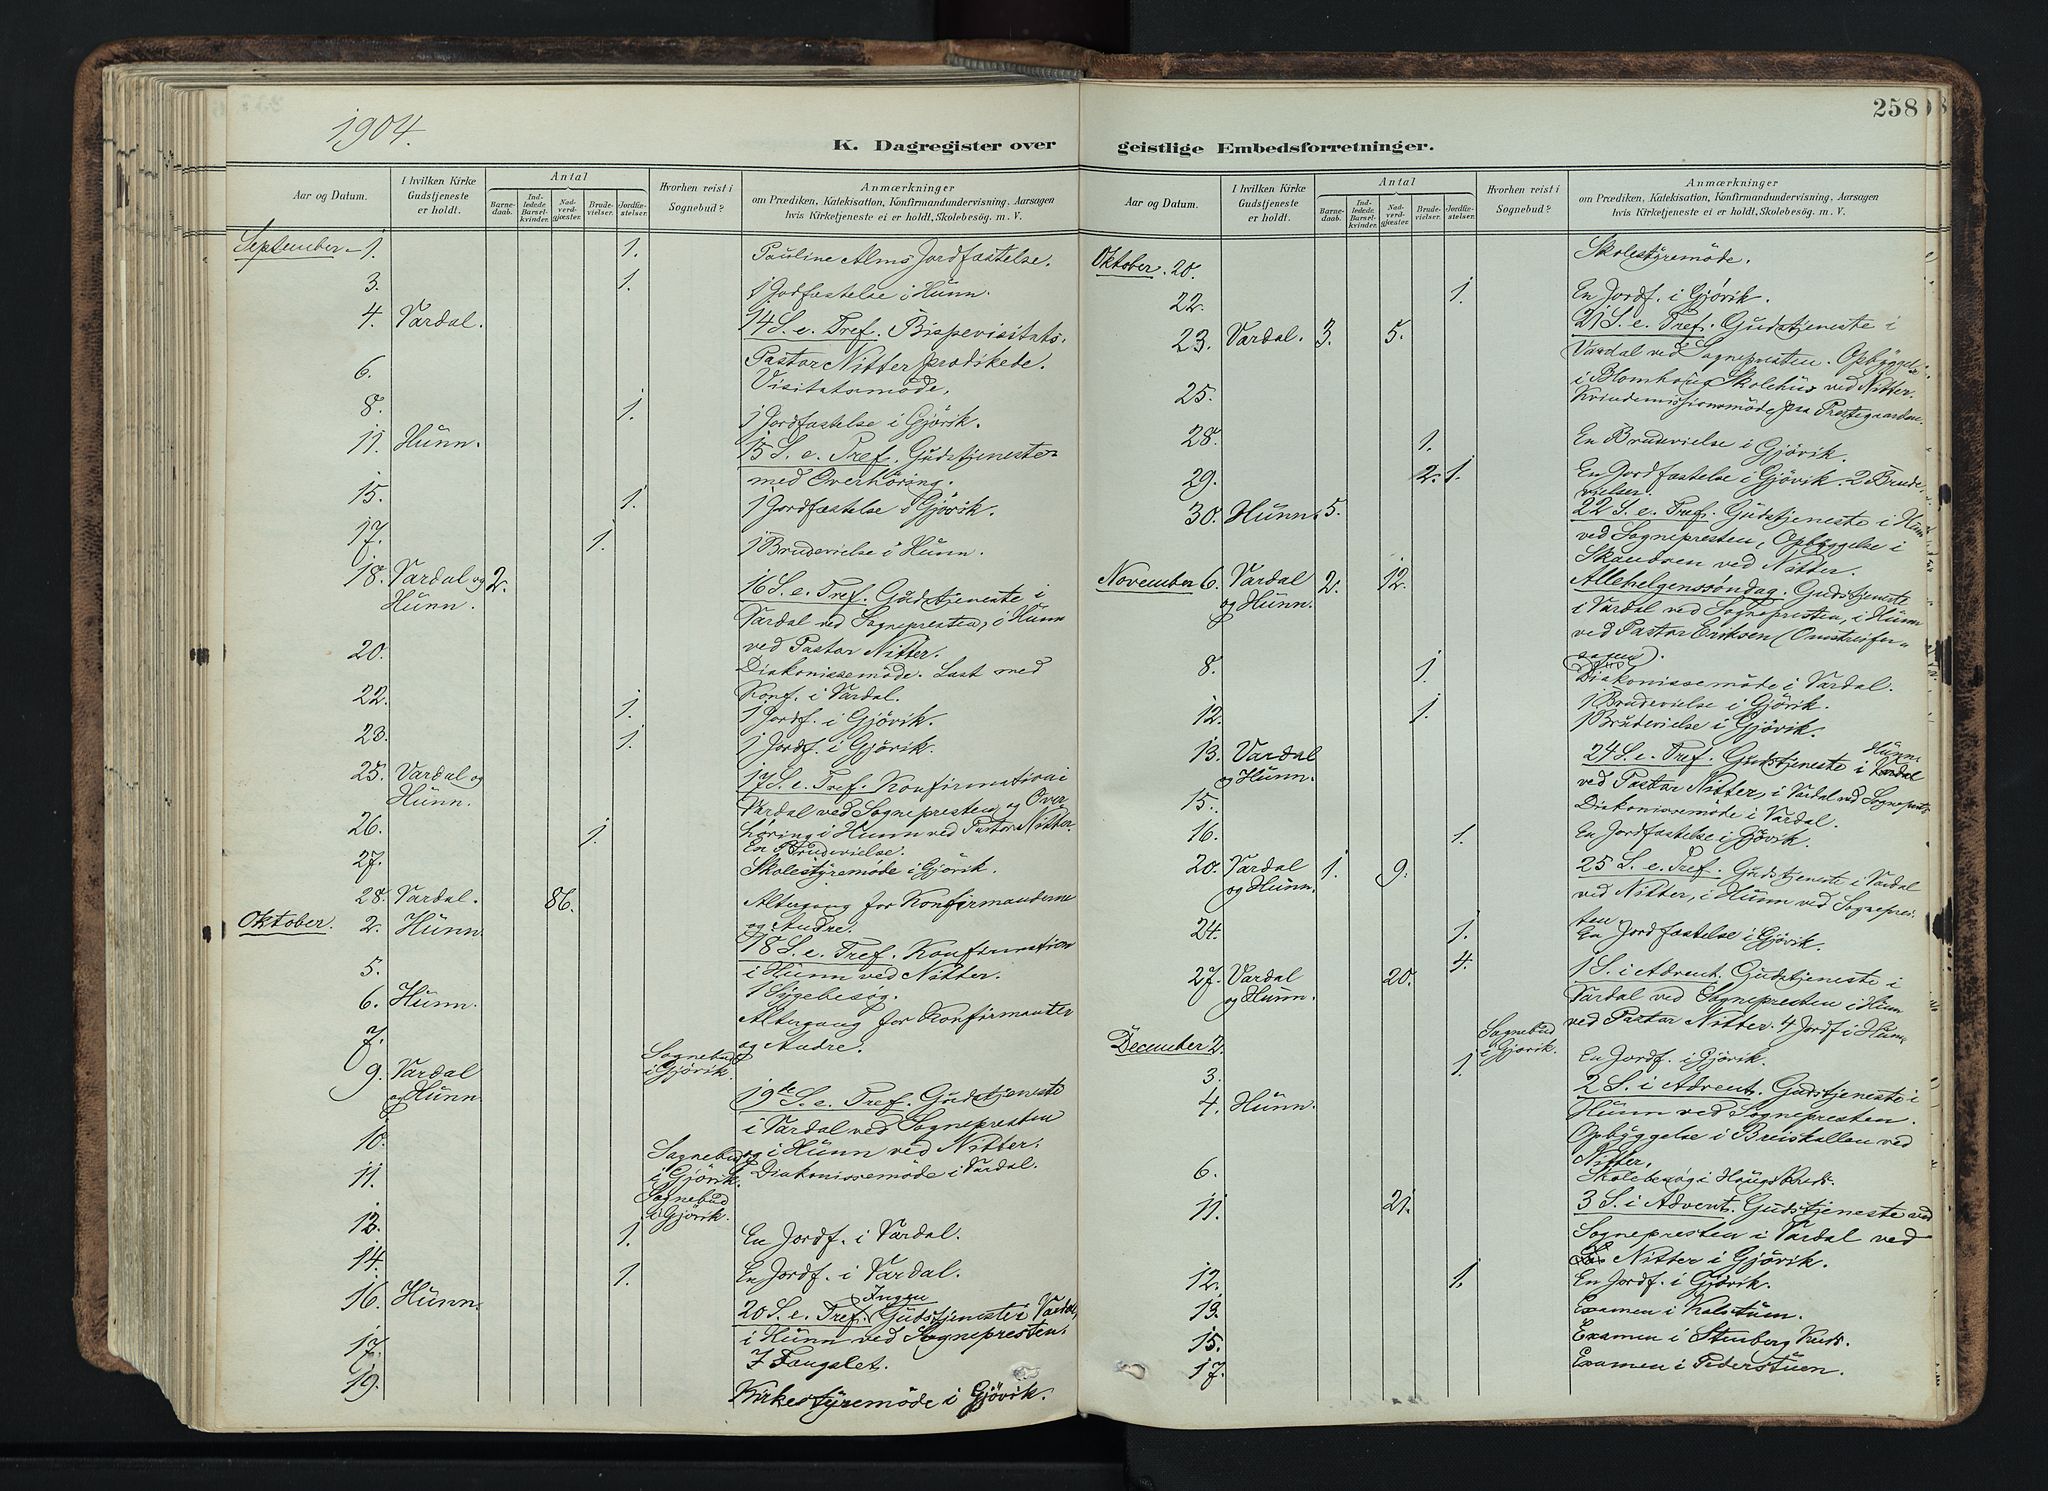 1904.
K. Dagregister over
Aar og Datum.
I hvilken Kirke Gudstjeneste er holdt.
Antal
Barnedaab.
Indledede Barselkvinder.
Nadverdgjæster.
Brudevielser.
Jordfæstelser.
Hvorhen reist i Sognebud?
Anmærkninger
om Prædiken, Katekisation, Konfirmandundervisning, Aarsagen
hvis Kirketjeneste ei er holdt, Skolebesög. m. V.
September 1. 1. Pauline Alms Jordfæstelse.
3. 1. 1 Jordfæstelse i Hunn.
4. Vardal. 14 S. e. Tref. Bispevisitats.
Pastor Nitter prædikede.
6. Visitatsmöde.
8. 1. 1 Jordfæstelse i Gjövik.
11. Hunn. 15 S. e. Tref. Gudstjeneste
med Overhöring.
15. 1. 1 Jordfæstelse i Gjövik.
17. 1. 1 Brudevielse i Hunn.
18. Vardal og Hunn. 2. 16 S. e. Tref. Gudstjeneste i
Vardal ved Sognepresten, i Hunn
ved Pastor Nitter.
20. Diakonissemöde. Læst med
Konf. i Vardal.
22. 1. 1 Jordf. i Gjövik.
23. 1. 1 Jordf. i Gjövik.
25. Vardal og Hunn. 17 S. e. Tref. Konfirmation i
Vardal ved Sognepresten og Over
höring i Hunn ved Pastor Nitter.
26. 1. En Brudevielse.
27. Skolestyremöde i Gjövik.
28. Vardal. 86. Altergang for Konfirmanderne
og Andre.
Oktober. 2. Hunn. 18 S. e. Tref. Konfirmation
i Hunn ved Nitter.
5. 1 Sygebesög.
6. Hunn. Altergang for Konfirmanter
og Andre.
7. Sognebud i Gjövik.
9. Vardal og Hunn. 19de S. e. Tref. Gudstjeneste
i Vardal ved Sognepresten
og i Hunn ved Nitter.
10. Sognebud i Gjövik.
11. Sognebud i Gjövik. Diakonissemöde i Vardal.
12. 1. En Jordf. i Vardal.
14. 1. En Jordf. i Vardal.
16. Hunn. 20 S. e. Tref. Ingen Gudstjeneste i Vardal,
i Hunn ved Sognepresten.
17. I Fængslet.
19. Kirkestyremöde i Gjövik.
258
geistlige Embedsforretninger.
Aar og Datum.
I hvilken Kirke Gudstjeneste er holdt.
Antal
Barnedaab.
Indledede Barselkvinder.
Nadverdgjæster.
Brudevielser.
Jordfæstelser.
Hvorhen reist i Sognebud?
Anmærkninger
om Prædiken, Katekisation, Konfirmandundervisning, Aarsagen
hvis Kirketjeneste ei er holdt, Skolebesög. m. V.
Oktober. 20. Skolestyremöde.
22. 1. En Jordf. i Gjövik.
23. Vardal. 3. 5. 21 S. e. Tref. Gudstjeneste i
Vardal ved Sognepresten. Opbyggelse
i Blomhaug Skolehus ved Nitter.
25. Kvindemissionsmöde paa Prestegaarden.
28. 1. En Brudevielse i Gjövik.
29. 2. 1. En Jordfæstelse i Gjövik. 2 Brude
vielser.
30. Hunn. 5. 22 S. e. Tref. Gudstjeneste i Hunn
ved Sognepresten, Opbyggelse i
ved Nitter.
November 6. Vardal og Hunn. 2. 12. Allehelgenssöndag. Gudstjeneste
i Vardal ved Sognepresten, i Hunn
ved Pastor Eriksen
sagen).
8. 1. Diakonissemöde i Vardal.
1 Brudevielse i Gjövik.
12. 1. 1 Brudevielse i Gjövik.
13. Vardal og Hunn. 24 S. e. Tref. Gudstjeneste i Hunn
ved Pastor Nitter, i Vardal ved Sognepr.
15. Diakonissemöde i Vardal.
16. 1. En Jordfæstelse i Gjövik.
20. Vardal og Hunn. 1. 9. 25 S. e. Tref. Gudstjeneste i Vardal
ved Nitter, i Hunn ved Sognepres-
ten.
24. 1. En Jordfæstelse i Gjövik.
27. Vardal og Hunn. 20. 4. 1 S. i Advent. Gudstjeneste i
Vardal ved Sognepresten i Hunn
ved Pastor Nitter. 4 Jordf. i Hunn.
December 2. Sognebud i Gjövik.
3. 1. En Jordf. i Gjövik.
4. Hunn. 2 S. i Advent. Gudstjeneste i
Hunn ved Sognepresten.
Opbyggelse i Breiskallen ved
Nitter.
6. Skolebesög i Haugs Kreds.
11. 21. 3 S. i Advent. Gudstjeneste ved
Sognepresten i Vardal ved
Nitter i Gjövik.
12. 1. En Jordf. i Gjövik.
13. Examen i Kalstum.
15. Examen i Stenberg Kreds.
17. Examen i Pederstuen.